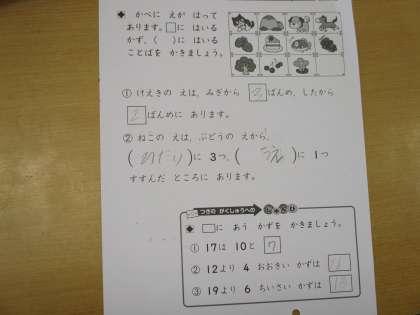 かべに えが はって
あります。□に はいる
かず、( )に はいる
ことばを かきましょう。
① けえきの えは、みぎから 2 ばんめ、したから
2 ばんめに あります。
② ねこの えは、ぶどうの えから、
(ひだり)に 3つ、( うえ )に 1つ
すすんだ ところに あります。
つぎの がくしゅうへの
□に あう かずを かきましょう。
① 17は 10と 7
② 12より 4 おおきい かずは
③ 19より 6 ちいさい かずは 13